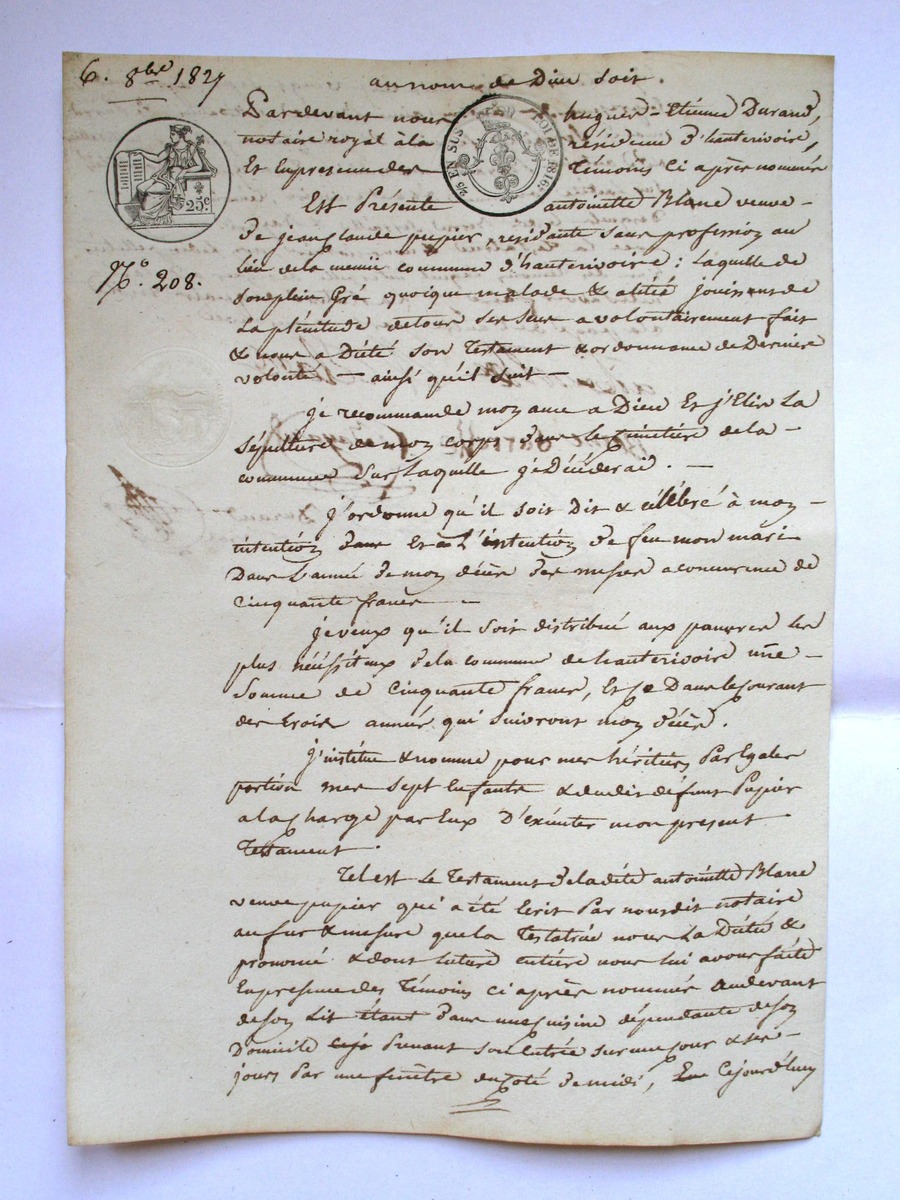 6. 8bre 1827
au nom de Dieu soit.
Pardevant nous hugues-Etienne Durand,
notaire royal à la résidence d'hauterivoire,
Et En presence des Témoins ci après nommés
25 c.
25 EN SUS
LOI DE 1816
Est Présente antoinette Blanc veuve
de jean claude pupier, residante sans profession au
lieu de la même commune d'hauterivoire: Laquelle de
N.o 208.
son plein Gré quoique malade & alitée jouissant de
La plénitude de tous ses sens a volontairement fait
& nous a Dicté son Testament & ordonnance de Derniere
volonté — ainsi qu'il suit —
je recommande mon ame a Dieu Et j'Elis La
sépulture de mon corps dans le Cimetière de la
commune sur Laquelle je Décéderai. —
j'ordonne qu'il soit Dit & célébré à mon
intention dans Et a L'intention de feu mon mari
Dans L'année de mon décès des messes a concurrence de
Cinquante francs —
je veux qu'il soit distribué aux pauvres les
plus néssiteux de la commune de hauterivoire une
somme de Cinquante francs, Et ce Dans le courant
des trois années qui suivront mon décès.
j'institue & nomme pour mes héritiers Par Egales
portion mes sept Enfants & dudit défunt Pupier
a la charge par Eux D'exécuter mon present
Testament.
Tel est Le Testament de la dite antoinette Blanc
veuve pupier qui a été Ecrit Par nous dit notaire
au fur & mesure que la Testatrice nous La Dicté &
prononcé & dont lecture entière nous lui avons faite
En presence des Témoins ci après nommés Audevant
de son Lit étant dans une cuisine dépendante de son
Domicile Prenant son Entrée sur une cour & ses
jours Par une fenêtre du coté de midi, Ce jourd'huy